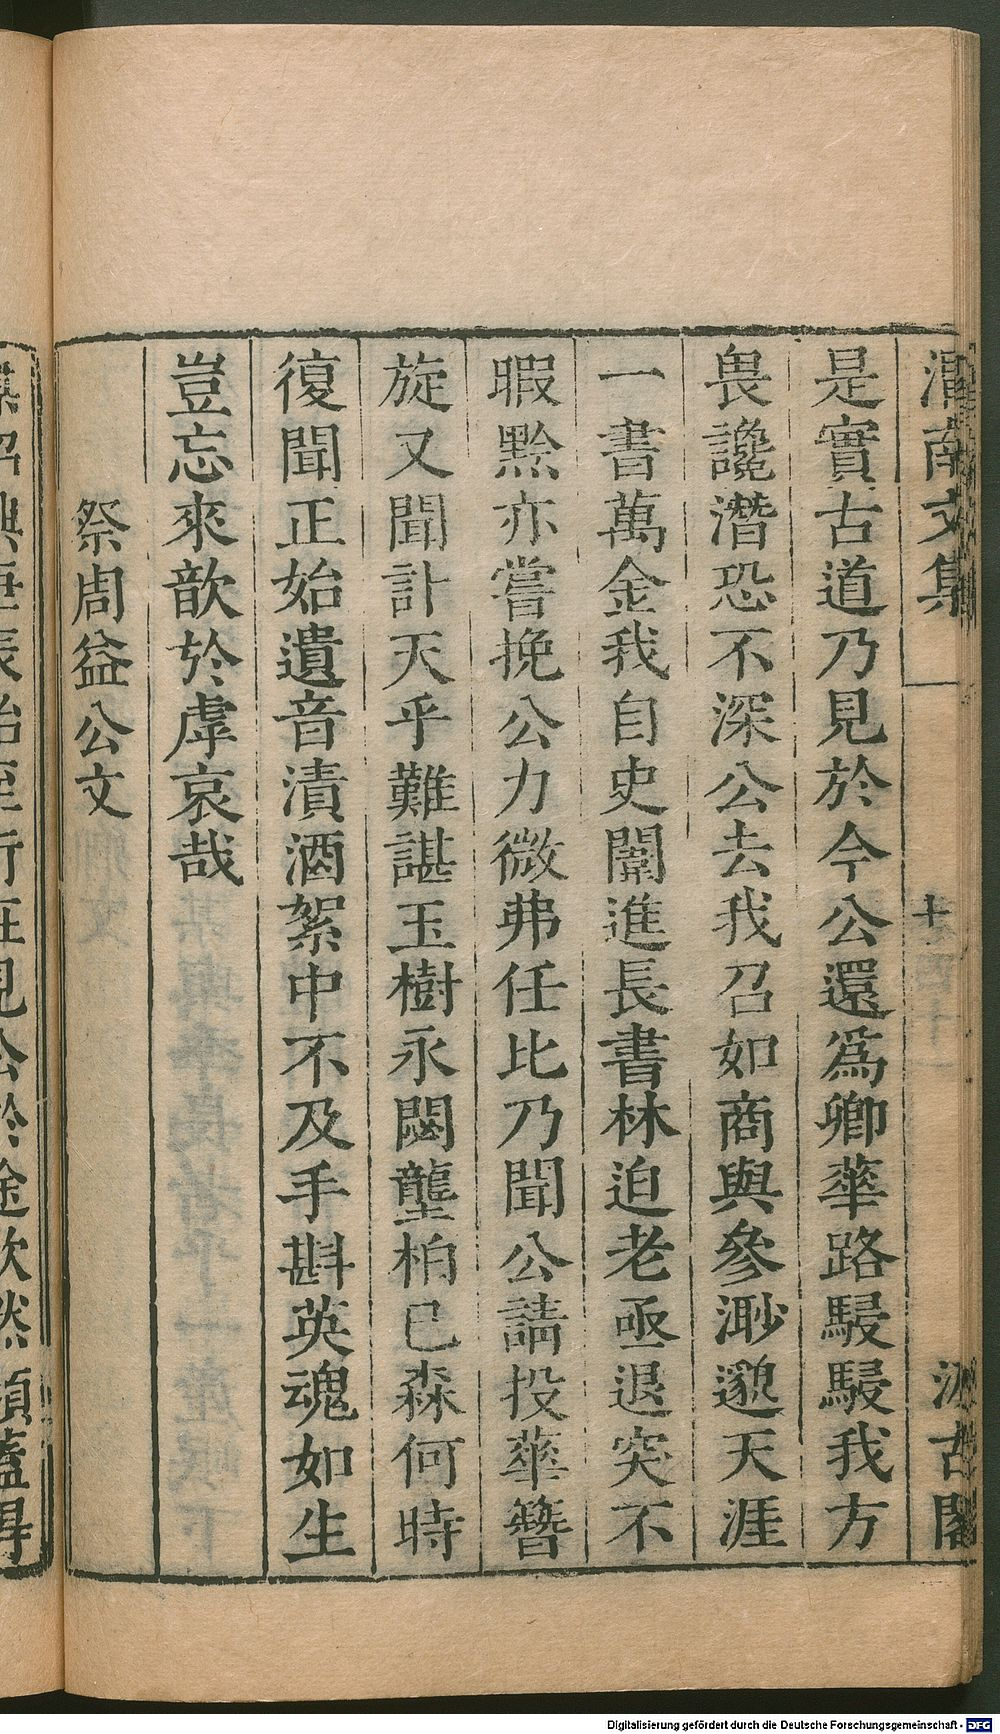 渭南文集 卷四十一 汲古閣
是實古道乃見於今公還爲卿華路駸駸我方
畏讒潛恐不深公去我召如商與參渺邈天涯
一書萬金我自史闈進長書林迫老亟退突不
暇黔亦嘗挽公力微弗任比乃聞公請投華簪
旋又聞訃天乎難諶玉樹永閟壟柏已森何時
復聞正始遺音漬酒絮中不及手斟英魂如生
豈忘來歆於虖哀哉
祭周益公文
Digitalisierung gefördert durch die Deutsche Forschungsgemeinschaft - DFG